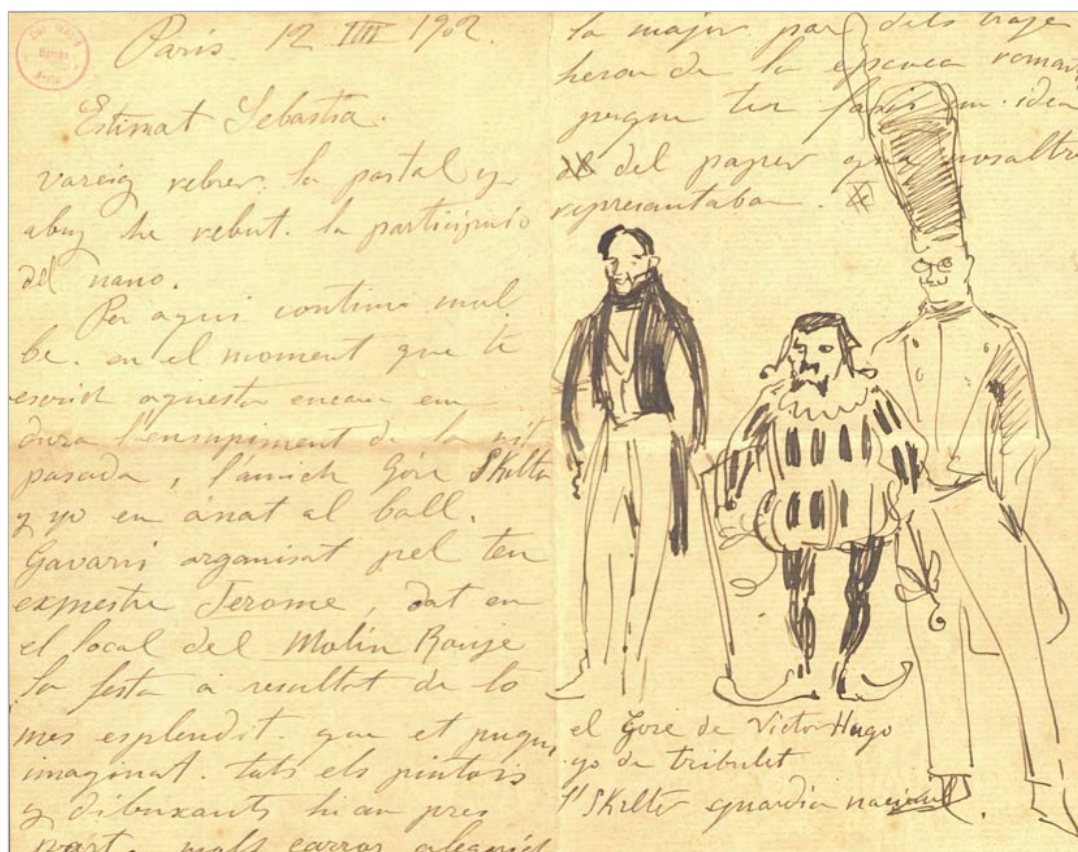 Paris 12 IIII 1902.
Estimat Sebastia.
vareig rebrer la postal y
abuy he rebut. la participacio
del nano.
Per aqui continuo mol
be. en el moment que te
escrich aquesta encara em
dura l'ensupiment de la nit
pasada, l'amich Gose SKelter
y yo em anat al ball.
Gavarni organisat pel teu
exmestre Jerome, dat en
el local del Molin Rouje
la festa a resultat de lo
mes esplendit. que et pugus
imaginat. tots els pintors
y dibuxants hi an pres
part. molt
la major part dels trajes
heran de la epoca
perque ten fasis un. idea
del paper que nosaltre
representaban.
el Gose de Victor Hugo
yo de tribulet
l'SKelter guardia nacional